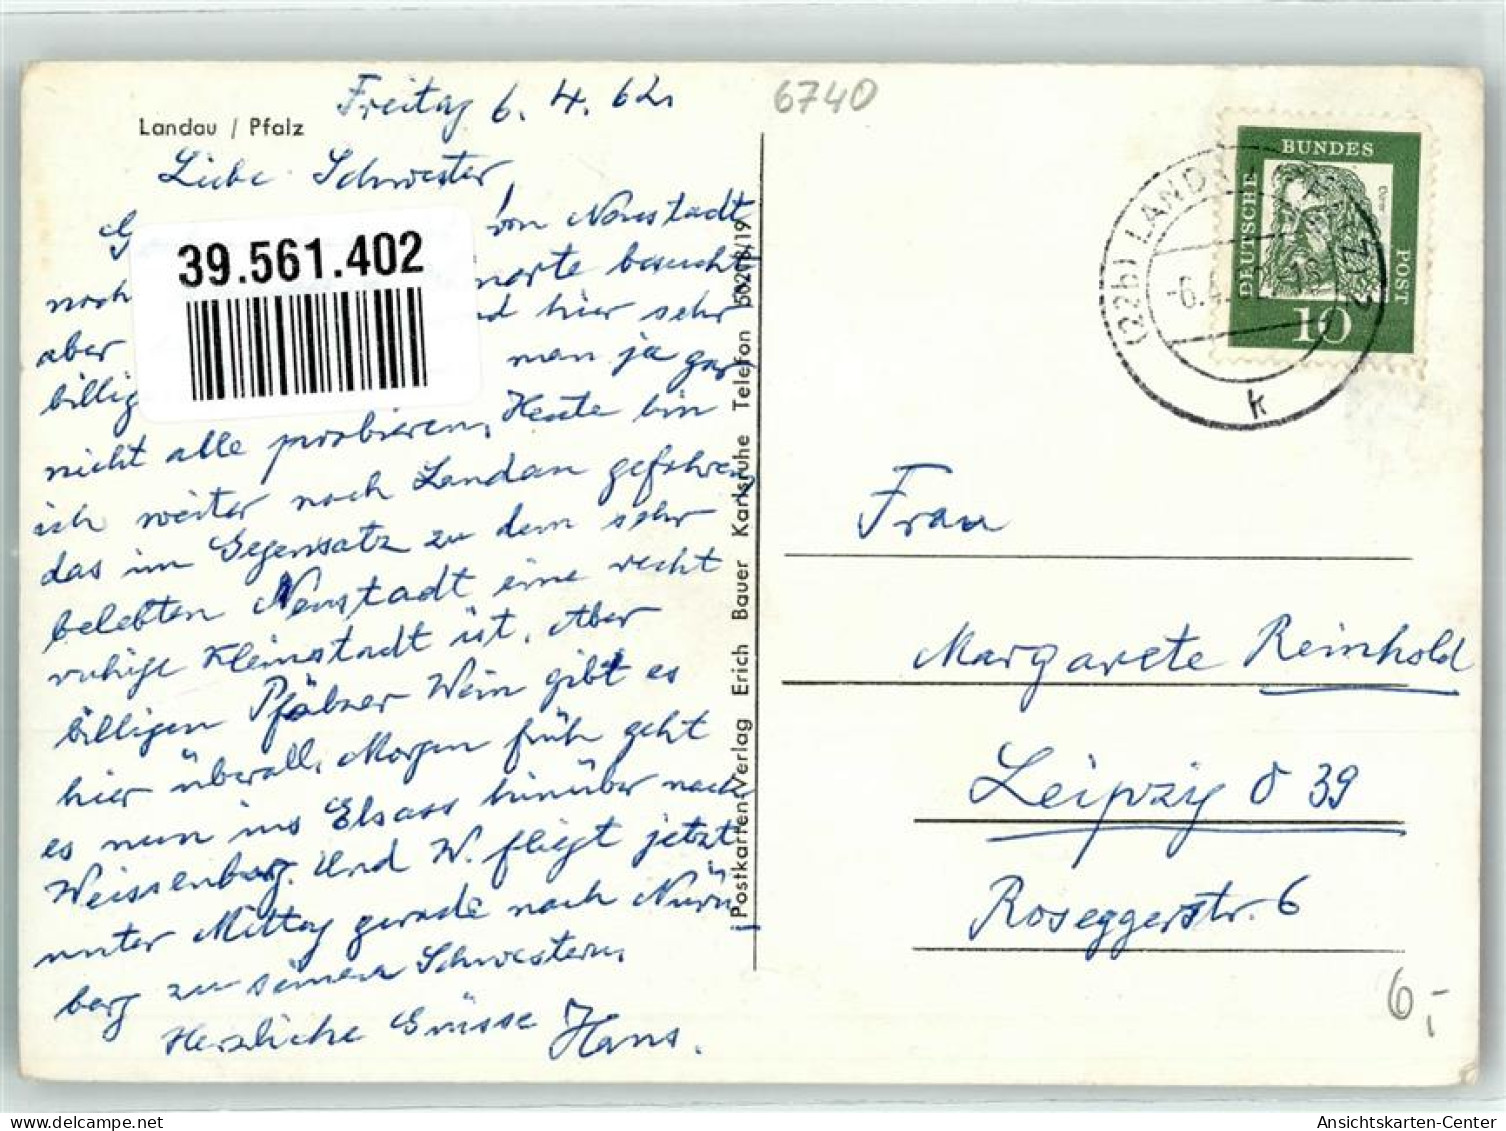 Landau / Pfalz
Freitag 6. 4. 62.
6740
Liebe Schwester,
von Neustadt
noch
besucht
39.561.402
aber
und hier sehr
billig
man ja gar
nicht alle probieren. Heute bin
ich weiter nach Landau gefahren,
das im Gegensatz zu dem sehr
belebten Neustadt eine recht
ruhige Kleinstadt ist. Aber
billigen Pfälzer Wein gibt es
hier überall. Morgen früh geht
es nun ins Elsass hinüber nach
Weissenburg. Und W. fliegt jetzt
unter Mittag gerade nach Nürn
berg zu seinen Schwestern.
Herzliche Grüsse Hans.
Postkarten-Verlag Erich Bauer Karlsruhe Telefon
DEUSCHE
BUNDES
POST
10
(22b) LANDAU
-6.4.
k
Frau
Margarete Reinhold
Leipzig O 39
Roseggerstr. 6
6,-
Ansichtskarten-Center